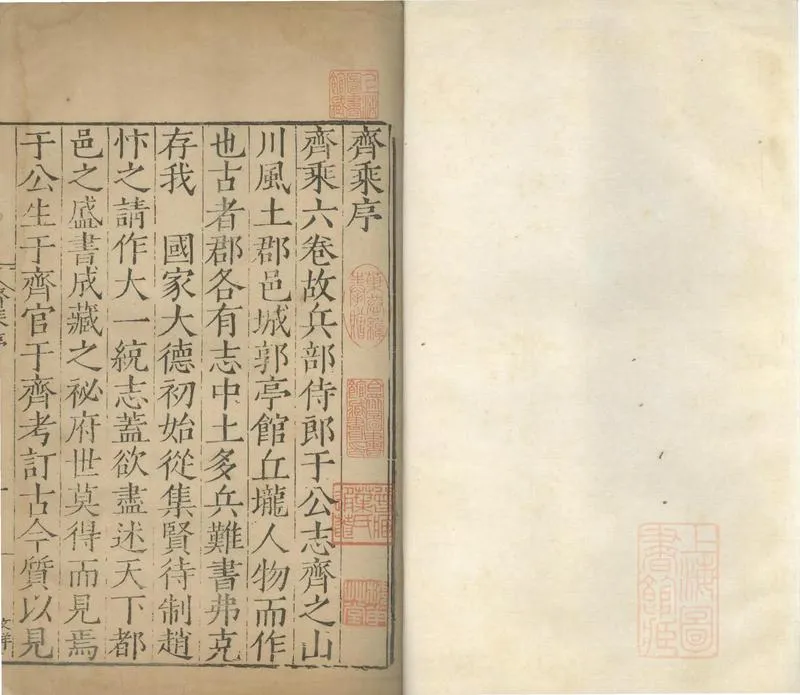 齊乘序
齊乘六卷故兵部侍郎于公志齊之山
川風土郡邑城郭亭館丘壠人物而作
也古者郡各有志中土多兵難書弗克
存我　國家大德初始從集賢待制趙
忭之請作大一統志蓋欲盡述天下都
邑之盛書成藏之祕府世莫得而見焉
于公生于齊官于齊考訂古今質以見
齊乘序
上海圖書館藏